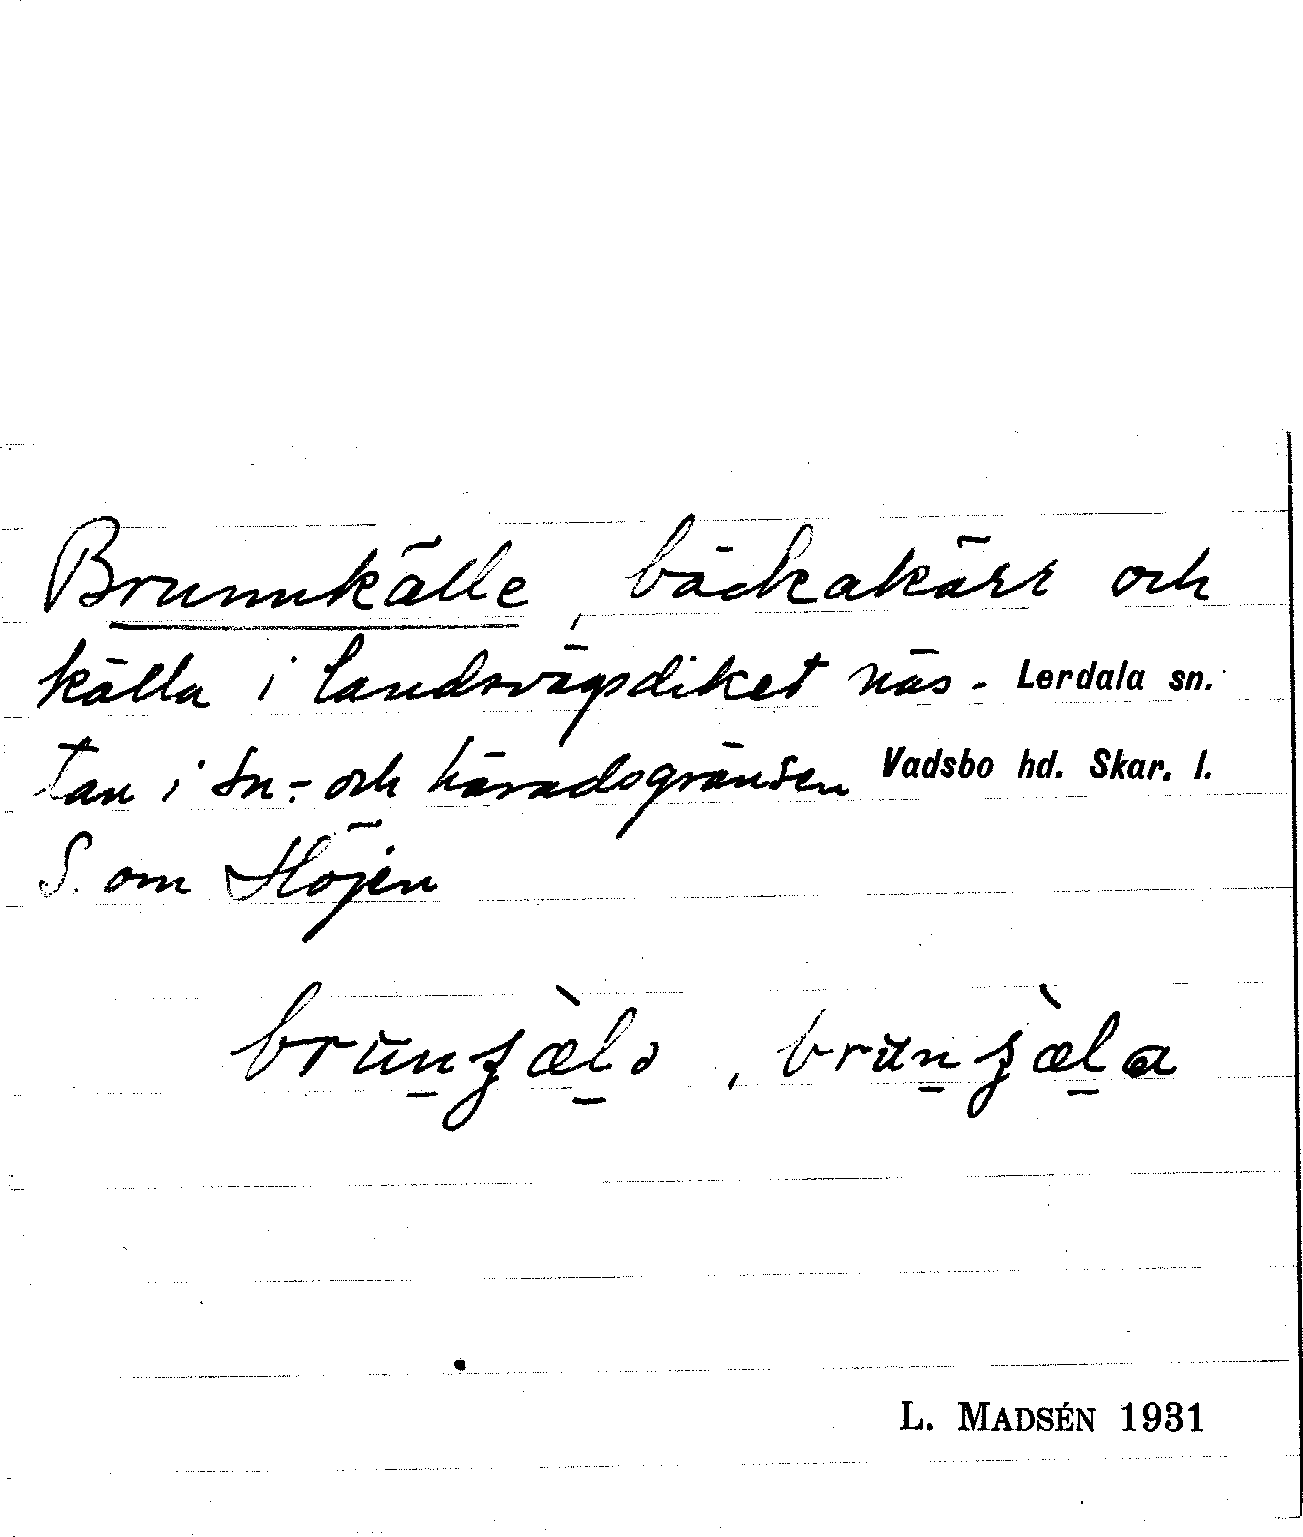 Brunnkälle, bäckakärr och
källa i landsvägsdiket näs-
Lerdala sn.
tan i sn- och häradsgränsen
Vadsbo hd. Skar. l.
S. om Höjen
L. MADSÉN 1931